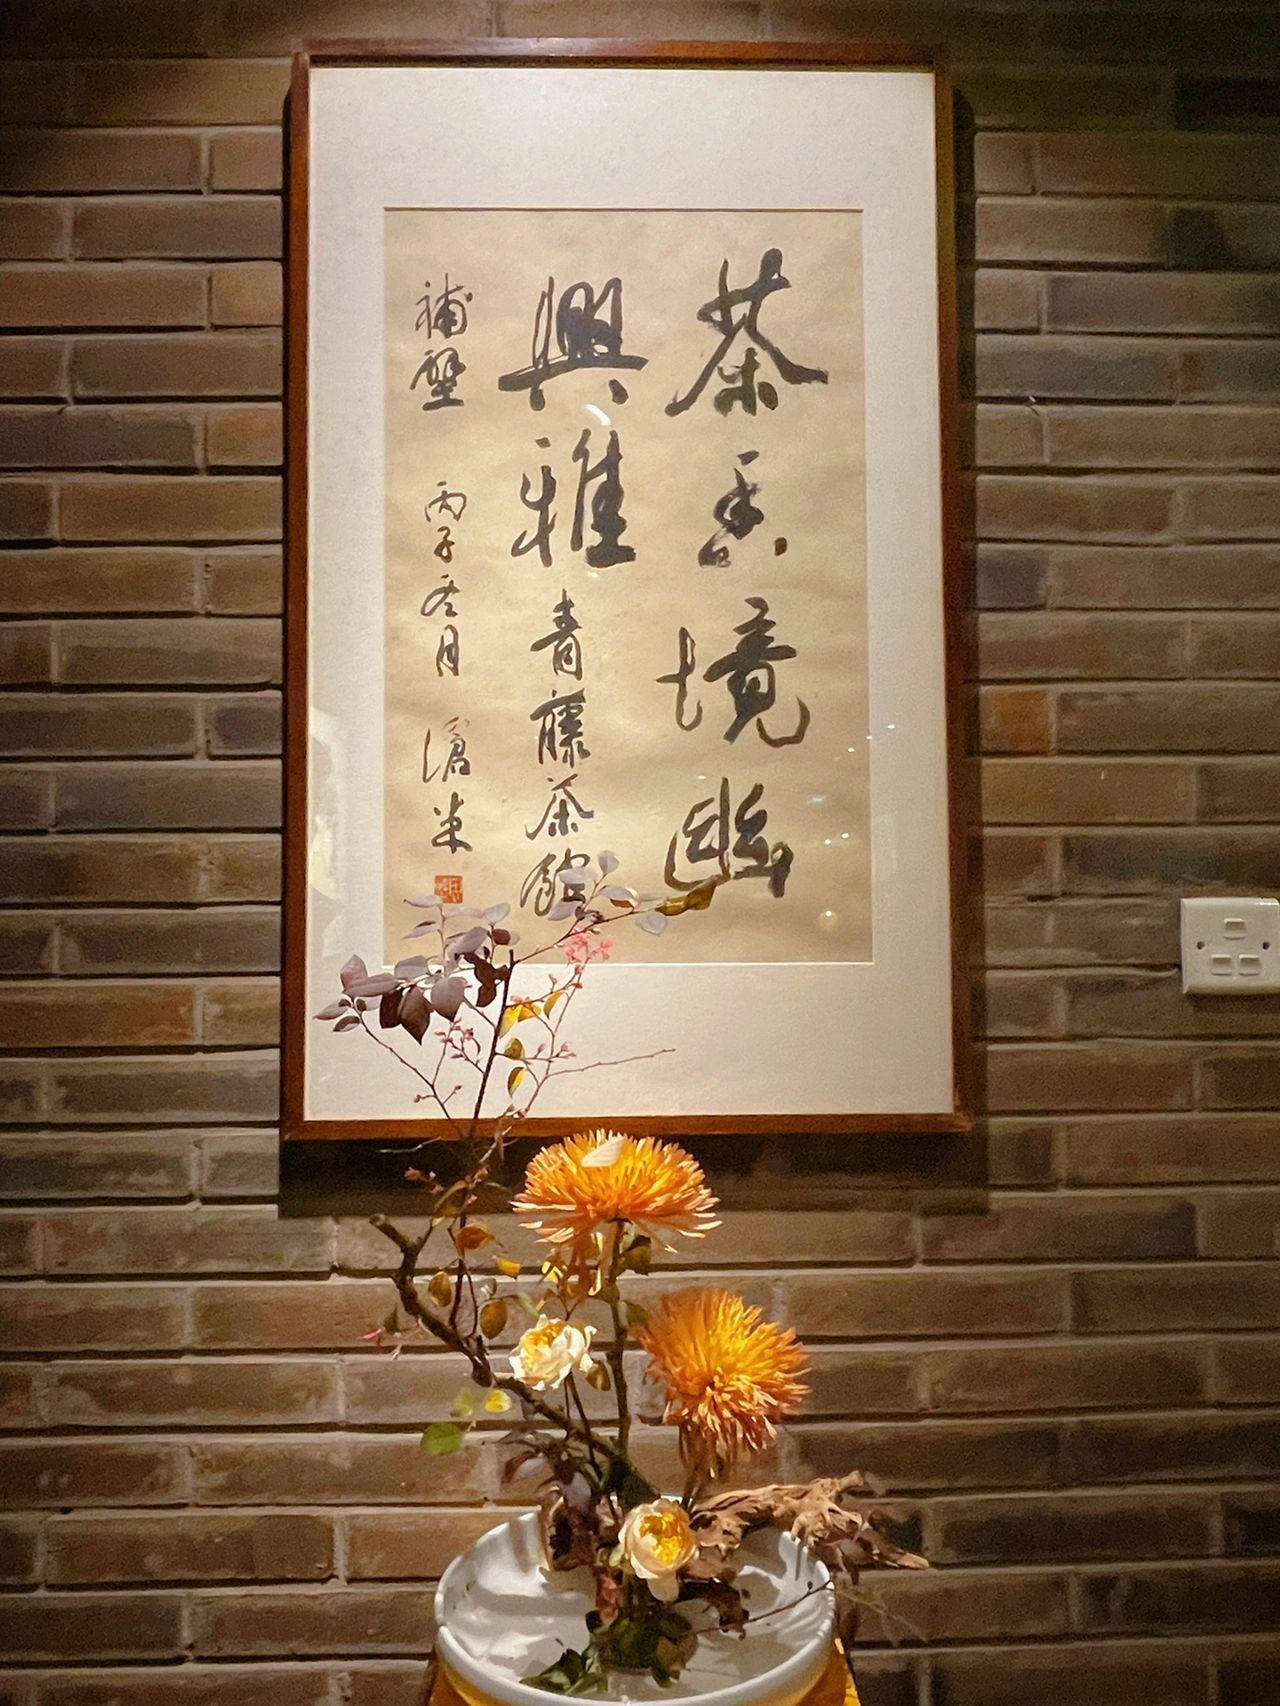 茶香境幽
興雅青藤茶館
補壁 丙子冬月 滄米